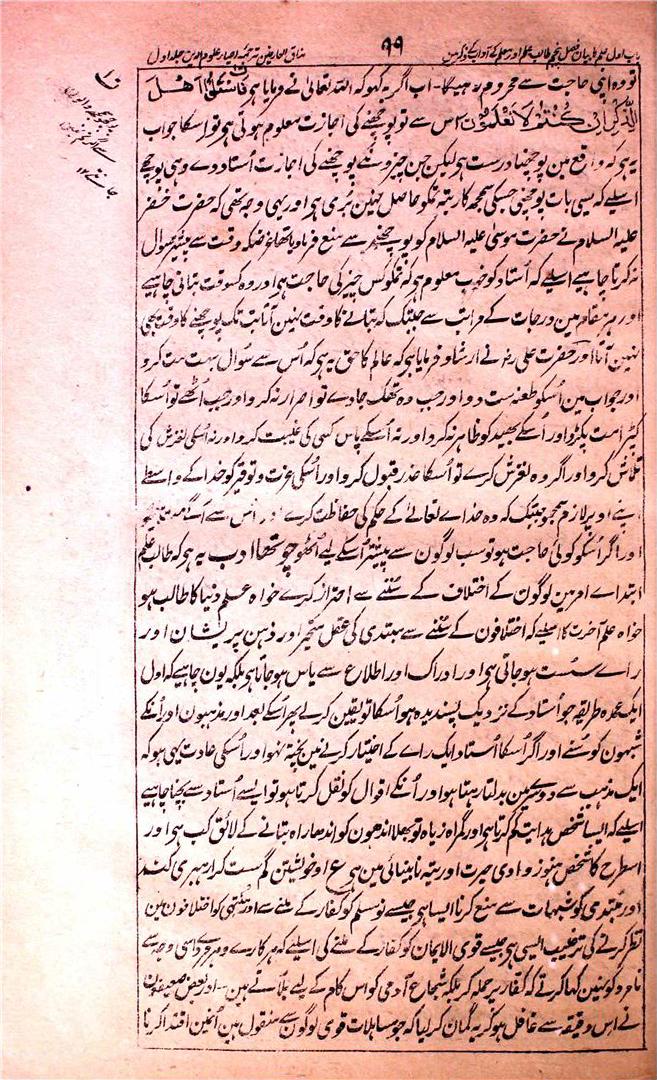 باب اول علم کا بیان فصل پنجم طالب علم اور معلم کے آداب کے ذکر میں
۹۹
مذاق العارفین ترجمہ احیاء علوم الدین جلد اول
تو وہ اپنی حاجت سے محروم رہیگا۔ اب اگر یہ کہو کہ اللہ تعالیٰ نے فرمایا ہو فَاسْئَلُوْا اَهْلَ
الذِّكْرِ اِنْ كُنْتُمْ لَا تَعْلَمُوْنَ اس سے تو پوچھنے کی اجازت معلوم ہوتی ہو تو اسکا جواب
یہ ہو کہ واقع مین پوچھنا درست ہو لیکن جن چیزونکے پوچھنے کی اجازت اُستاد دے وہی پوچھے
اسلیے کہ ایسی بات پوچھنی جسکی سمجھ کا رتبہ تمکو حاصل نہین بُری ہو اور یہی وجہ تھی کہ حضرت خضر
علیہ السلام نے حضرت موسیٰ علیہ السلام کو پوچھنے سے منع فرما دیا تھا غرضکہ وقت سے پیشتر سوال
نہ کرنا چاہیے اسلیے کہ اُستاد کو خوب معلوم ہو کہ تمکو کس چیز کی حاجت ہو اور وہ کسوقت بتانی چاہیے
اور ہر مقام مین درجات کے مراتب سے جبتک کہ بتانے کا وقت نہین آتا تب تک پوچھنے کا وقت بھی
نہین آتا اور حضرت علی رضہ نے ارشاد فرمایا ہو کہ عالم کا حق یہ ہو کہ اُس سے سُوال بہت مت کرو
اور جواب مین اُسکو طعنہ مت دو اور جب وہ تھک جاوے تو اصرار نہ کرو اور جب اُٹھے تو اُسکا
کپڑا مت پکڑو اور اُسکے بھید کو ظاہر نہ کرو اور نہ اُسکے پاس کسی کی غیبت کرو اور نہ اُسکی لغزش کی
تلاش کرو اور اگر وہ لغزش کرے تو اُسکا عذر قبول کرو اور اُسکی عزت و توقیر کو خدا کے واسطے
اپنے اوپر لازم سمجھو جبتک کہ وہ خداے تعالےٰ کے حکم کی حفاظت کرے اور اُس سے آگے مت بیٹھو
اور اگر اُسکو کوئی حاجت ہو تو سب لوگون سے پیشتر اُسکے لیے اُٹھو چوتھا ادب یہ ہو کہ طالب علم
ابتداے امر مین لوگون کے اختلاف کے سُننے سے احتراز کرے خواہ علم دنیا کا طالب ہو
خواہ علم آخرت کا اسلیے کہ اختلافون کے سُننے سے مبتدی کی عقل متحیر اور ذہن پریشان اور
راے سُست ہو جاتی ہو اور ادراک اور اطلاع سے یاس ہو جاتا ہو بلکہ یون چاہیے کہ اول
ایک عمدہ طریقہ جو اُستاد کے نزدیک پسندیدہ ہو اُسکا تو یقین کرلے پھر اُسکے بعد اور مذہبون اور اُنکے
شبہون کو سُنے اور اگر اُسکا اُستاد ایک راے کے اختیار کرنے مین پختہ نہو اور اُسکی عادت یہی ہو کہ
ایک مذہب سے دوسرے مین بدلتا رہتا ہو اور اُنکے اقوال کو نقل کرتا ہو تو ایسے اُستاد سے بچنا چاہیے
اسلیے کہ ایسا شخص ہدایت کم کرتا ہو اور گمراہ زیادہ تو بھلا اندھون کو اندھا راہ بتانے کے لائق کب ہو اور
اسطرح کا شخص ہنوز وادی حیرت اور تیہ نابینائی مین ہو ع او خویشتن گم ست کرا رہبری کند
اور مبتدی کو شبہات سے منع کرنا ایسا ہو جیسے نو مسلم کو کفار کے ملنے سے اور منتہی کو اختلافون مین
نظر کرنے کی ترغیب ایسی ہو جیسے قوی الایمان کو کفار کے ملنے کی اسلیے کہ ہر کارے و ہر مردے اسی وجہ سے
نامرد کو نہین کہا کرتے کہ کفار پر حملہ کر بلکہ شجاع آدمی کو اس کام کے لیے بلاتے ہین۔ اور بعض ضعیفون
نے اس دقیقہ سے غافل ہو کر یہ گمان کر لیا کہ جو مساہلات قوی لوگون سے منقول ہین اُنمین اقتدا کرنا